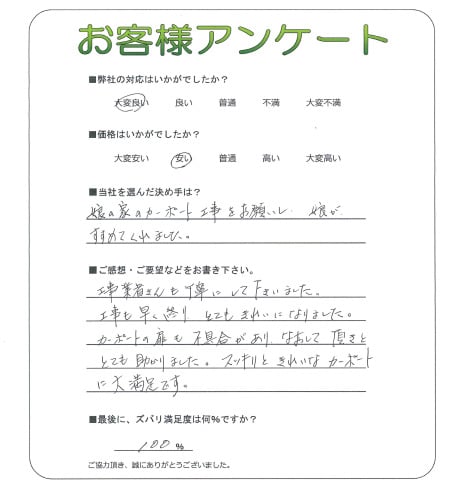 お客様アンケート
■弊社の対応はいかがでしたか？
大変良い 良い 普通 不満 大変不満
■価格はいかがでしたか？
大変安い 安い 普通 高い 大変高い
■当社を選んだ決め手は？
娘の家のカーポート工事をお願いし、娘が
すすめてくれました。
■ご感想・ご要望などをお書き下さい。
工事業者さんも丁寧にして下さいました。
工事も早く終り とてもきれいになりました。
カーポートの扉も不具合があり なおして頂きと
とても助かりました。スッキリときれいなカーポート
に大満足です。
■最後に、ズバリ満足度は何%ですか？
100 %
ご協力頂き、誠にありがとうございました。